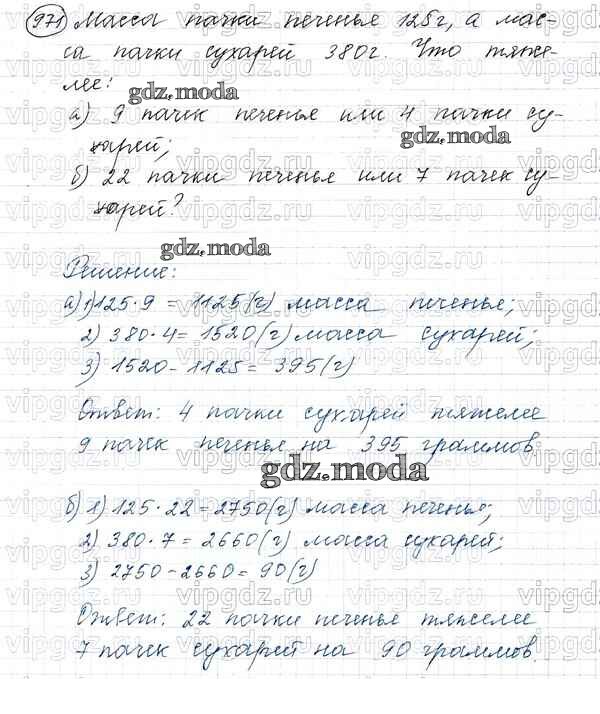 971 Масса пачки печенье 125г, а мас-
са пачки сухарей 380г. Что тяже-
лее:
gdz.moda
а) 9 пачек печенье или 4 пачки су-
gdz.moda
харей;
б) 22 пачки печенья или 7 пачек су-
харей?
gdz.moda
Решение:
а) 1) 125·9 = 1125(г) масса печенья;
2) 380·4 = 1520(г) масса сухарей;
3) 1520-1125 = 395(г)
Ответ: 4 пачки сухарей тяжелее
9 пачек печенье на 395 граммов.
gdz.moda
б) 1) 125·22 = 2750(г) масса печенье;
2) 380·7 = 2660(г) масса сухарей;
3) 2750-2660 = 90(г)
Ответ: 22 пачки печенье тяжелее
7 пачек сухарей на 90 граммов.
vipgdz.ru